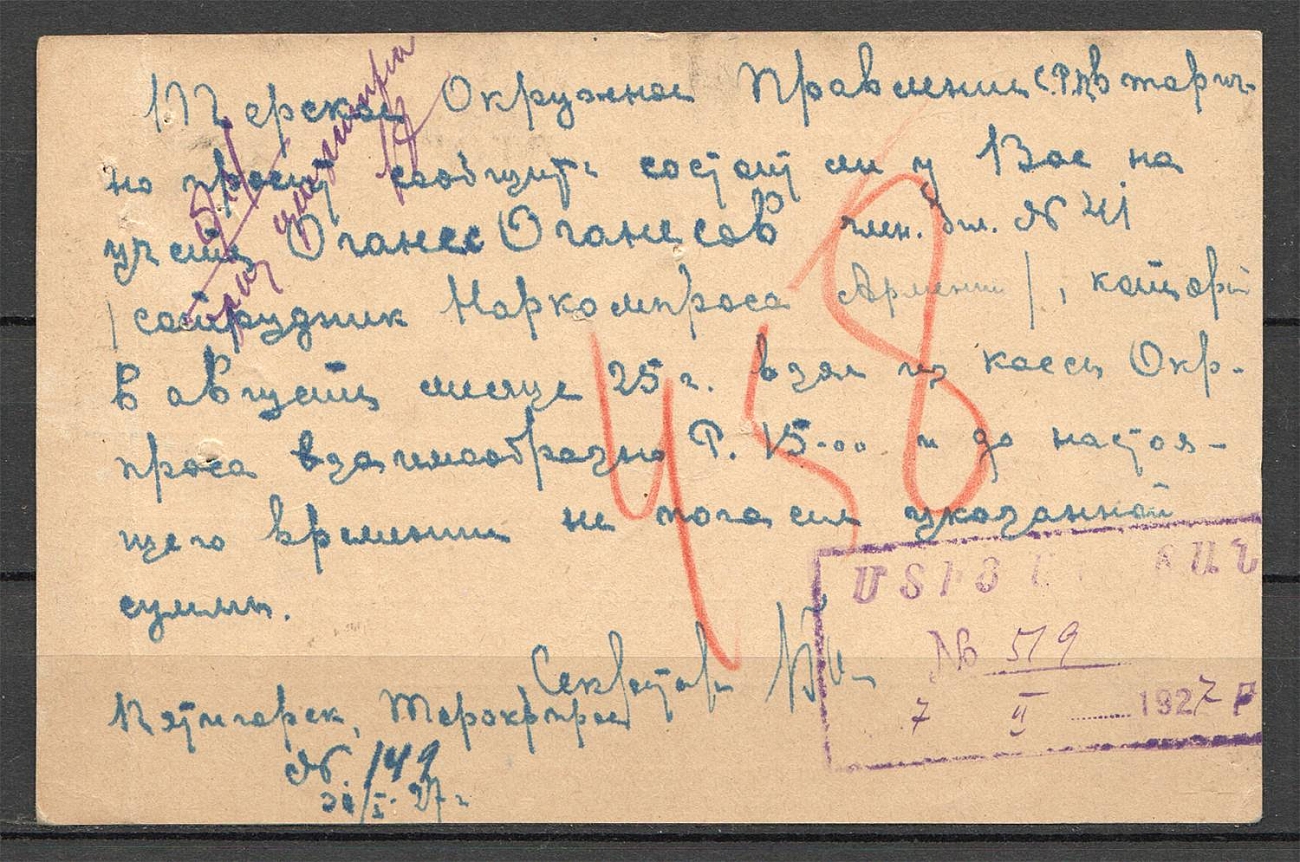 Терское Окружное Правление СРПвторич-
но просит сообщить состоит ли у Вас на
учете Оганес Оганесов член. бил. № 41
/ сотрудник Наркомпроса Армении /, который
в августе месяце 25 г. взял из кассы Окр-
проса взаимообразно Р. 15-00 и до настоя-
щего времени не погасил указанной
суммы.
Секретарь
Пятигорск, Терокрпрос
№ 149
31/I-27 г.
458
№ 519
7 II 1927 Г